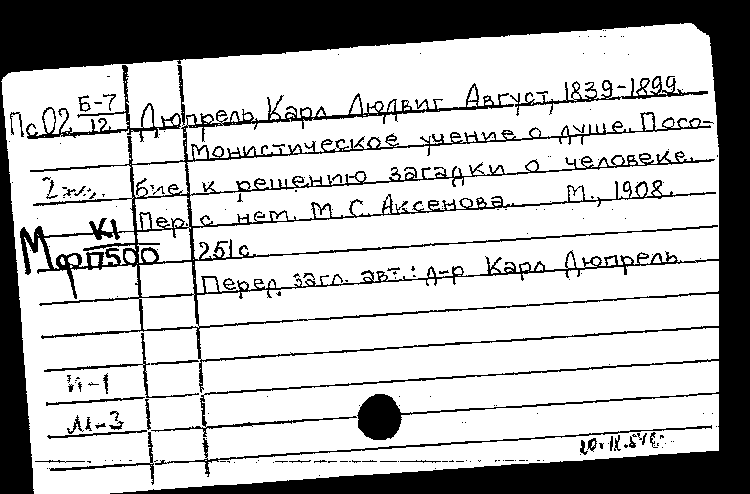 ПсО2 Б-7/12 Дюпрель, Карл Людвиг Август, 1839-1899.
Монистическое учение о душе. Посо-
2 экз. бие к решению загадки о человеке.
Пер. с нем. М. С. Аксенова. М., 1908.
Мф К1/П500 251 с.
Перед загл. авт.: д-р Карл Дюпрель
И-1
М-3